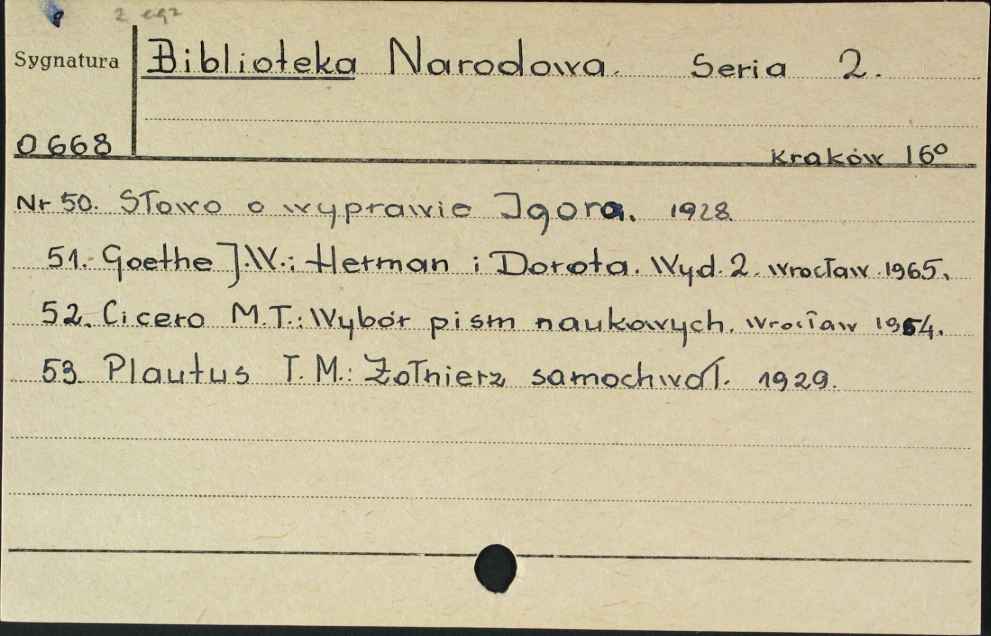 8 2 egz
Sygnatura Biblioteka Narodowa. Seria 2.
0668 Kraków 16°
Nr 50. Słowo o wyprawie Igora. 1928.
51. Goethe J.W.: Herman i Dorota. Wyd. 2. Wrocław 1965.
52. Cicero M.T.: Wybór pism naukowych. Wrocław 1954.
53 Plautus T. M.: Żołnierz samochwał. 1929.